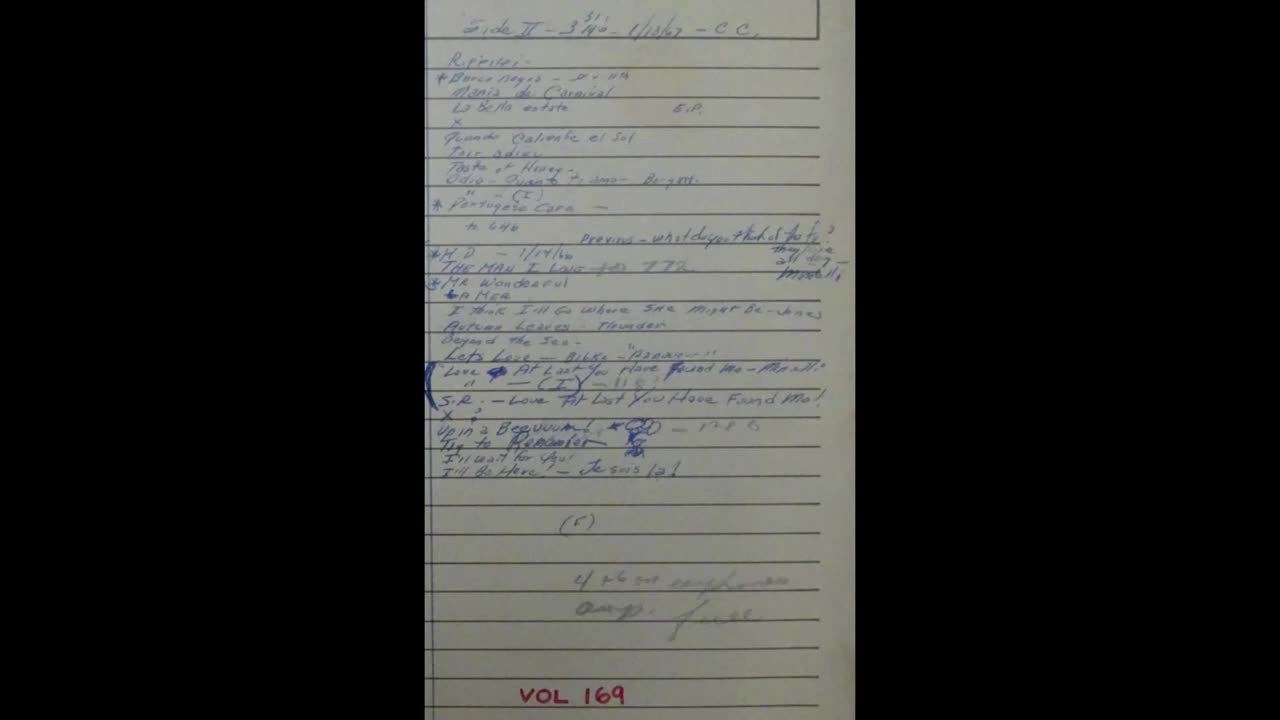 Side II - 3 3/4 - 1/13/67 - C C.
* Barco negro -
Mania de Carnival
La Bella estate E.P.
X
Quando Caliente el Sol
Taste of Honey -
Odio - Quanto ti amo -
" - (I)
* Portugese Cara -
to 640
Previous - what do you think of
they are
all day -
* M.D - 1/14/66
THE MAN I Love - to 772
* Mr Wonderful
LA MER
I Think I'll Go Where She Might Be - Jones
Autumn Leaves - Thunder
Beyond the Sea -
Lets Love - Bilko -
Love At Last You Have Found Me - Minelli
" - (I) -
S.R. - Love At Last You Have Found Me!
X ?
Up in a
Try to Remember
I'll wait for you!
I'll Be Here! - Je suis la!
(5)
amp. full
VOL 169